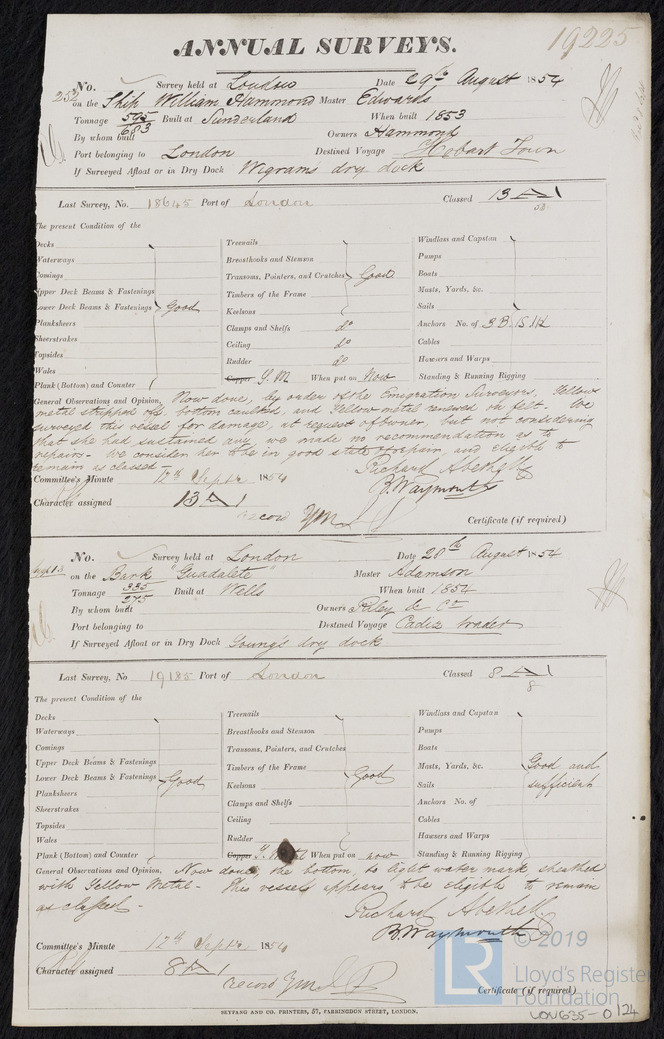 19225
ANNUAL SURVEYS.
No. Survey held at London Date 29th August 1854
252 on the Ship William Hammond Master Edwards
Tonnage 595/683 Built at Sunderland When built 1853
By whom built Owners Hammond
Port belonging to London Destined Voyage Hobart Town
If Surveyed Afloat or in Dry Dock Wigrams dry dock
Last Survey, No. 18645 Port of London Classed 13 A 1
53
The present Condition of the
Decks
Waterways
Comings
Upper Deck Beams & Fastenings
Lower Deck Beams & Fastenings Good
Planksheers
Sheerstrakes
Topsides
Wales
Plank (Bottom) and Counter
Treenails
Breasthooks and Stemson
Transoms, Pointers, and Crutches Good
Timbers of the Frame
Keelsons
Clamps and Shelfs do
Ceiling do
Rudder do
Copper Y.M When put on Now
Windlass and Capstan
Pumps
Boats
Masts, Yards, &c.
Sails
Anchors No. of 3B. 1S. 1K
Cables
Hawsers and Warps
Standing & Running Rigging
General Observations and Opinion, Now done, by order of the Emigration Surveyors, Yellow
metal stripped off, bottom caulked, and Yellow metal renewed on felt. We
surveyed this vessel for damage, at request of owner, but not considering
that she had sustained any, we made no recommendation as to
repairs - We consider her to be in good state of repair, and eligible to
remain as classed -
Richard Abethell
B. Waymouth
Committee's Minute 12th Septr 1854
Character assigned 13 A 1
record YM
Certificate (if required)
No. Survey held at London Date 28th August 1854
on the Bark "Guadalete" Master Adamson
Tonnage 335/275 Built at Wells When built 1854
By whom built Owners Riley & Co
Port belonging to Destined Voyage Cadiz trader
If Surveyed Afloat or in Dry Dock Young's dry dock
Last Survey, No 19185 Port of London Classed 8 A 1
8
The present Condition of the
Decks
Waterways
Comings
Upper Deck Beams & Fastenings
Lower Deck Beams & Fastenings Good
Planksheers
Sheerstrakes
Topsides
Wales
Plank (Bottom) and Counter
Treenails
Breasthooks and Stemson
Transoms, Pointers, and Crutches
Timbers of the Frame
Keelsons Good
Clamps and Shelfs
Ceiling
Rudder
Copper Y. Metal When put on now
Windlass and Capstan
Pumps
Boats
Masts, Yards, &c. Good and
Sails sufficient
Anchors No. of
Cables
Hawsers and Warps
Standing & Running Rigging
General Observations and Opinion, Now done, the bottom, to light water mark sheathed
with Yellow Metal - This vessel appears to be eligible to remain
as classed -
Richard Abethell
B. Waymouth
Committee's Minute 12th Septr 1854
Character assigned 8 A 1
record YM
Certificate (if required)
SEYFANG AND CO. PRINTERS, 57, FARRINGDON STREET, LONDON.
LR © 2019
Lloyd's Register
Foundation
LON635-0124